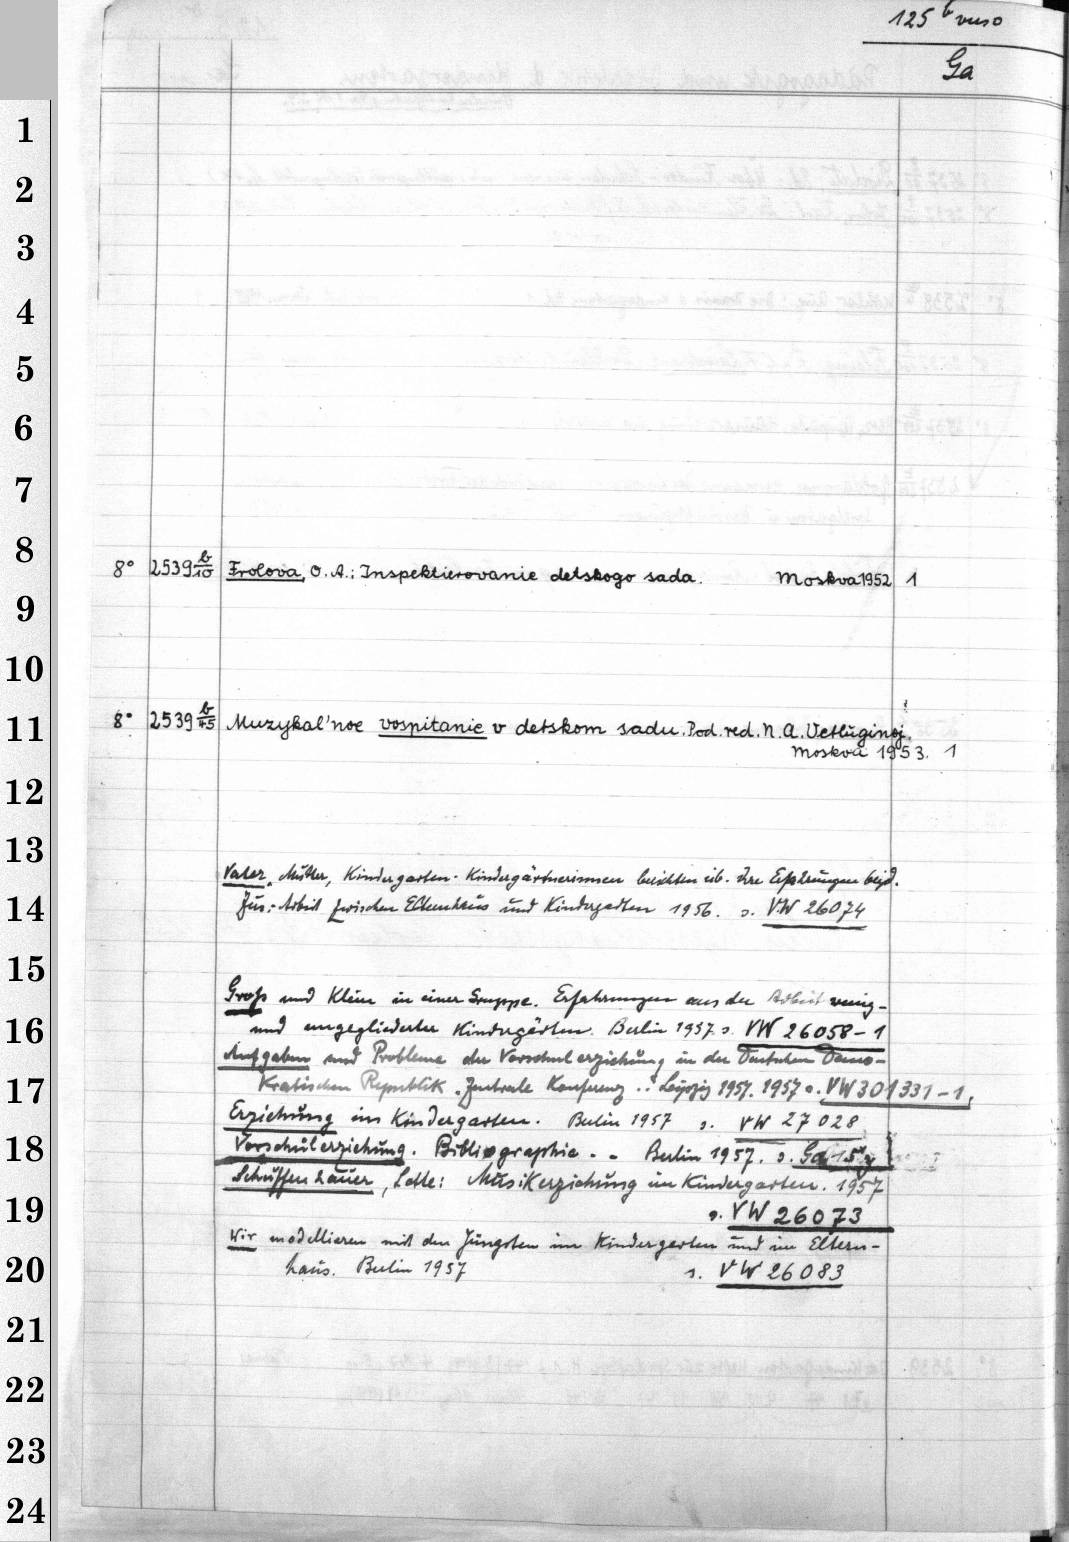 125 b verso
Ga
8° 2539 b/10 Frolova, O. A.: Inspektierovanie detskogo sada. Moskva 1952 1
8° 2539 b/45 Muzykal'noe vospitanie v detskom sadu. Pod. red. N. A. Vetluginoj.
Moskva 1953. 1
Vater, Mutter, Kindergarten. Kindergärtnerinnen berichten üb. ihre Erfahrungen bei d.
Zus.-Arbeit zwischen Elternhaus und Kindergarten 1956. s. VW 26074
Groß und Klein in einer Gruppe. Erfahrungen aus der Arbeit wenig-
und ungegliederter Kindergärten. Berlin 1957 s. VW 26058-1
Aufgaben und Probleme der Vorschulerziehung in der Deutschen Demo-
kratischen Republik. Zentrale Konferenz .. Leipzig 1957. 1957 s. VW 301331-1,
Erziehung im Kindergarten. Berlin 1957 s. VW 27028
Vorschulerziehung. Bibliographie. . Berlin 1957. s. Ga
Schuffenhauer, Lotte: Musikerziehung im Kindergarten. 1957
s. VW 26073
Wir modellieren mit den Jüngsten im Kindergarten und im Eltern-
haus. Berlin 1957 s. VW 26083
1
2
3
4
5
6
7
8
9
10
11
12
13
14
15
16
17
18
19
20
21
22
23
24